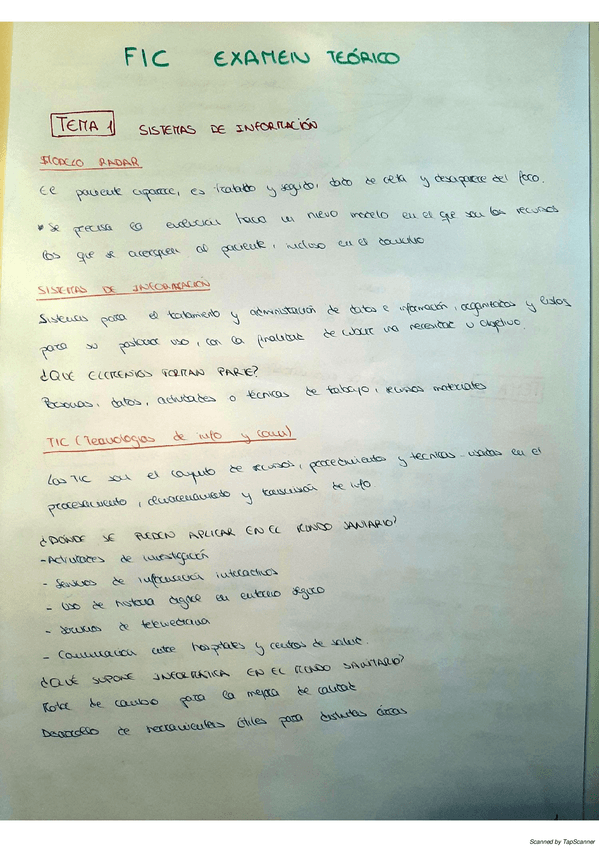 FIC EXAMEN TEÓRICO
TEMA 1 SISTEMAS DE INFORMACIÓN
MODELO RADAR
El paciente aparece, es tratado y seguido, dado de alta y desaparece del foco.
* Se precisa la evolución hacia un nuevo modelo en el que son los recursos
los que se acerquen al paciente, incluso en el domicilio
SISTEMAS DE INFORMACIÓN
Sistemas para el tratamiento y administración de datos e información, organizados y listos
para su posterior uso, con la finalidad de cubrir una necesidad u objetivo.
¿QUE ELEMENTOS FORMAN PARTE?
Personas, datos, actividades o técnicas de trabajo, recursos materiales
TIC (Tecnologías de info y com)
Las TIC son el conjunto de recursos, procedimientos y técnicas usadas en el
procesamiento, almacenamiento y transmisión de info.
¿DÓNDE SE PUEDEN APLICAR EN EL MUNDO SANITARIO?
- Actividades de investigación
- Servicios de información interactivos
- Uso de historia digital en entorno seguro
- Servicios de telemedicina
- Comunicación entre hospitales y centros de salud.
¿QUÉ SUPONE INFORMÁTICA EN EL MUNDO SANITARIO?
Motor de cambio para la mejora de calidad
Desarrollo de herramientas útiles para distintas áreas
Scanned by TapScanner